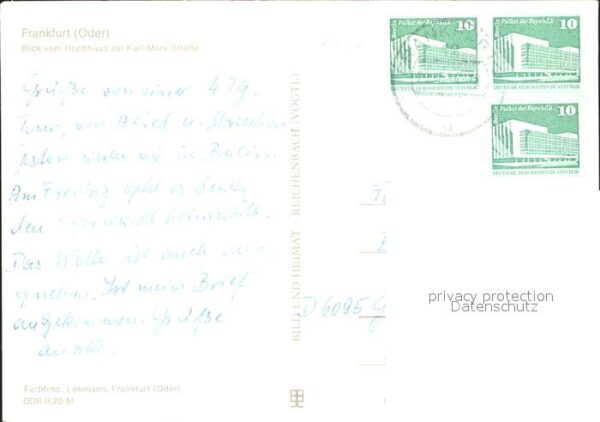 Frankfurt (Oder)
Blick vom Hochhaus zur Karl-Marx-Straße
Grüße von einer 4 Tg.
Tour, von Alfred u.
waren wir in Berlin.
Am Freitag geht es durch
den Spreewald heimwärts.
Das Wetter ist auch an-
genehm. Ist mein Brief
angekommen. Grüße
BILD UND HEIMAT REICHENBACH (VOGTL)
Farbfoto: Lehmann, Frankfurt (Oder)
DDR 0,20 M
Berlin Palast der Republik 10
DEUTSCHE DEMOKRATISCHE REPUBLIK
Berlin Palast der Republik 10
DEUTSCHE DEMOKRATISCHE REPUBLIK
Berlin Palast der Republik 10
DEUTSCHE DEMOKRATISCHE REPUBLIK
D 6095 G
privacy protection
Datenschutz